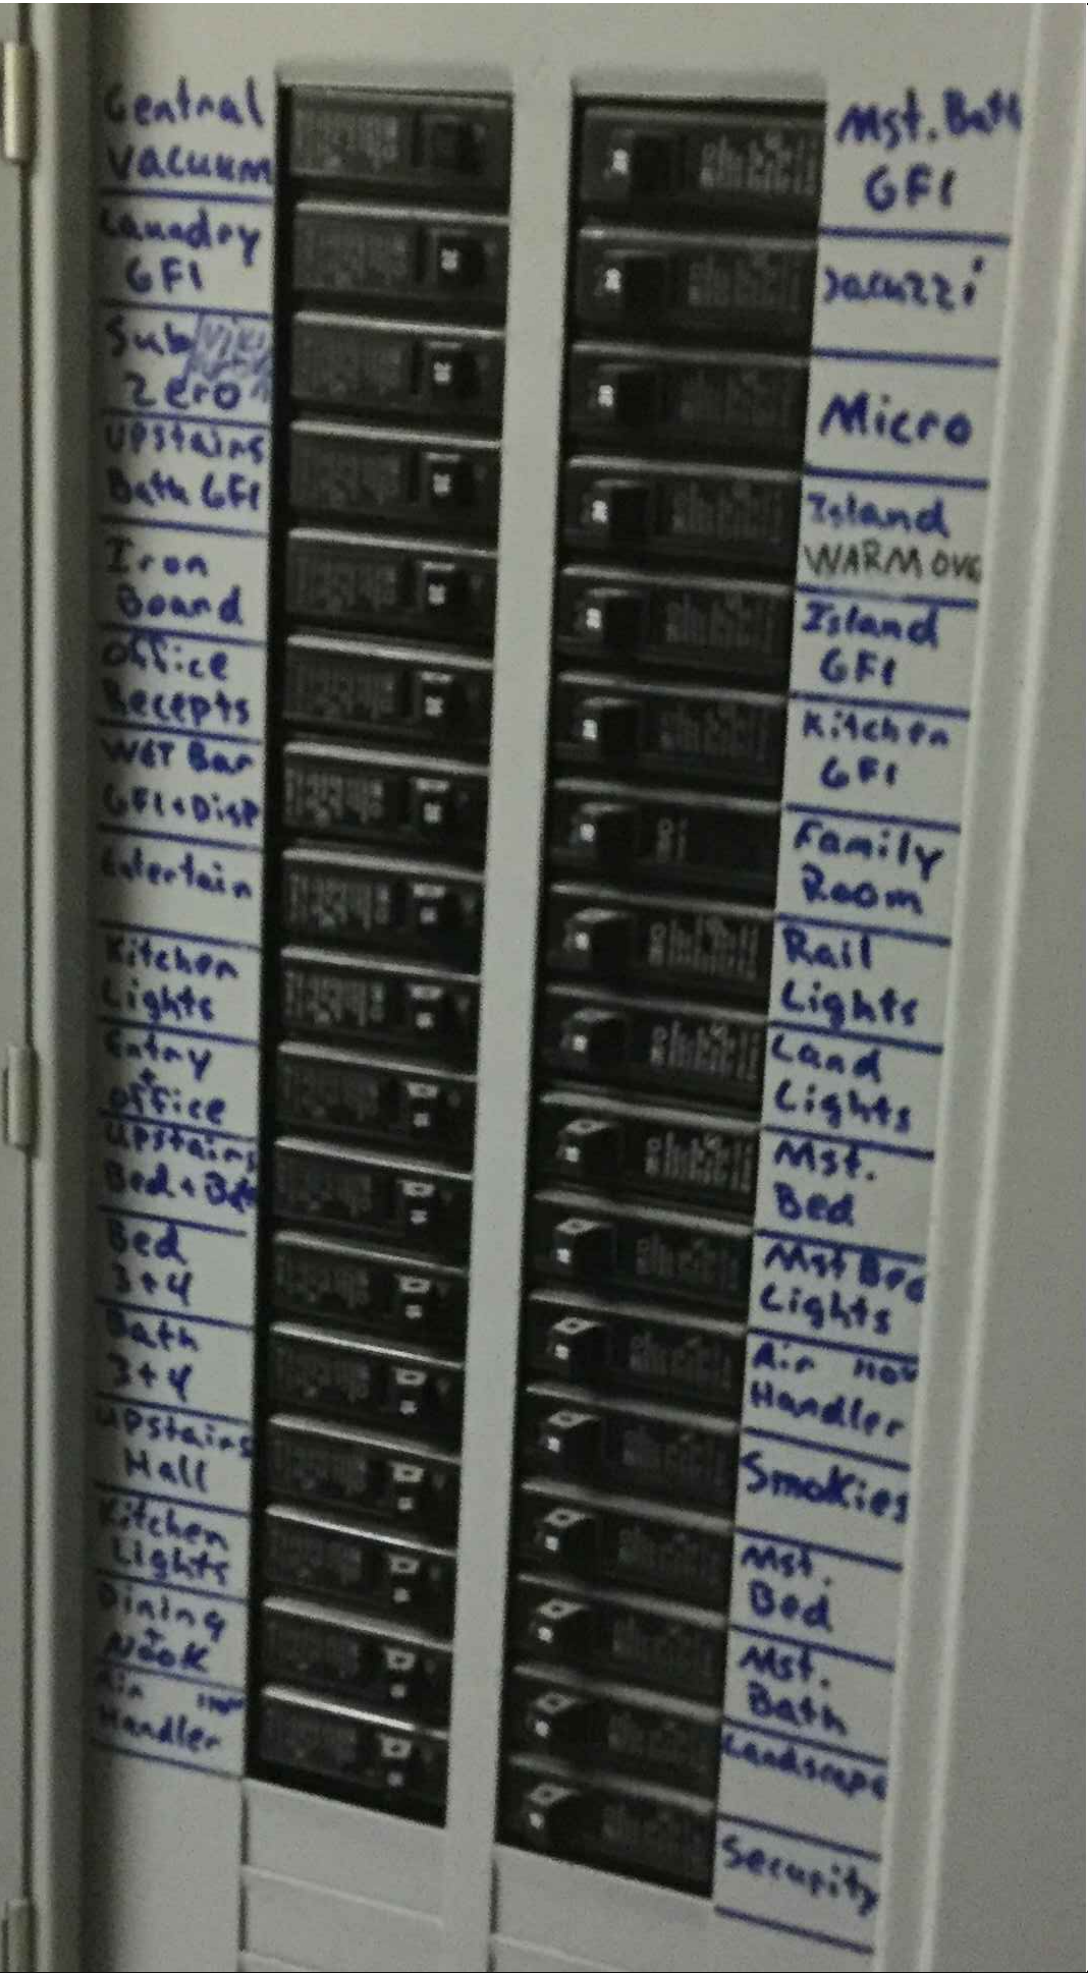 Central
Vacuum
Laundry
GFI
Sub
Zero
Upstairs
Bath GFI
Iron
Board
Office
Recepts
WET Bar
GFI + Disp
Entertain
Kitchen
Lights
Entry
+
Office
Upstairs
Bed +
Bed
3+4
Bath
3+4
Upstairs
Hall
Kitchen
Lights
Dining
+
Nook
Air 110v
Handler
Mst. Bath
GFI
Jacuzzi
Micro
Island
WARM OVE
Island
GFI
Kitchen
GFI
Family
Room
Rail
Lights
Land
Lights
Mst.
Bed
Mst Bed
Lights
Air 110v
Handler
Smokies
Mst.
Bed
Mst.
Bath
Landscape
Security